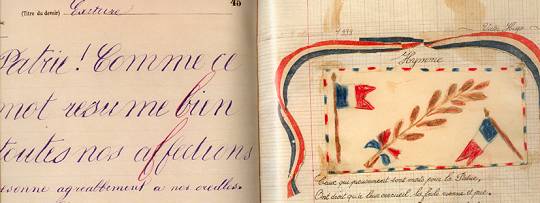 (Titre du devoir) Ecriture
Patrie ! Comme ce
mot résume bien
toutes nos affections
sonne agréablement à nos oreilles.
Victor Hugo
Hymne
Ceux qui pieusement sont morts pour la Patrie,
Ont droit qu'à leur cercueil la foule vienne et prie.